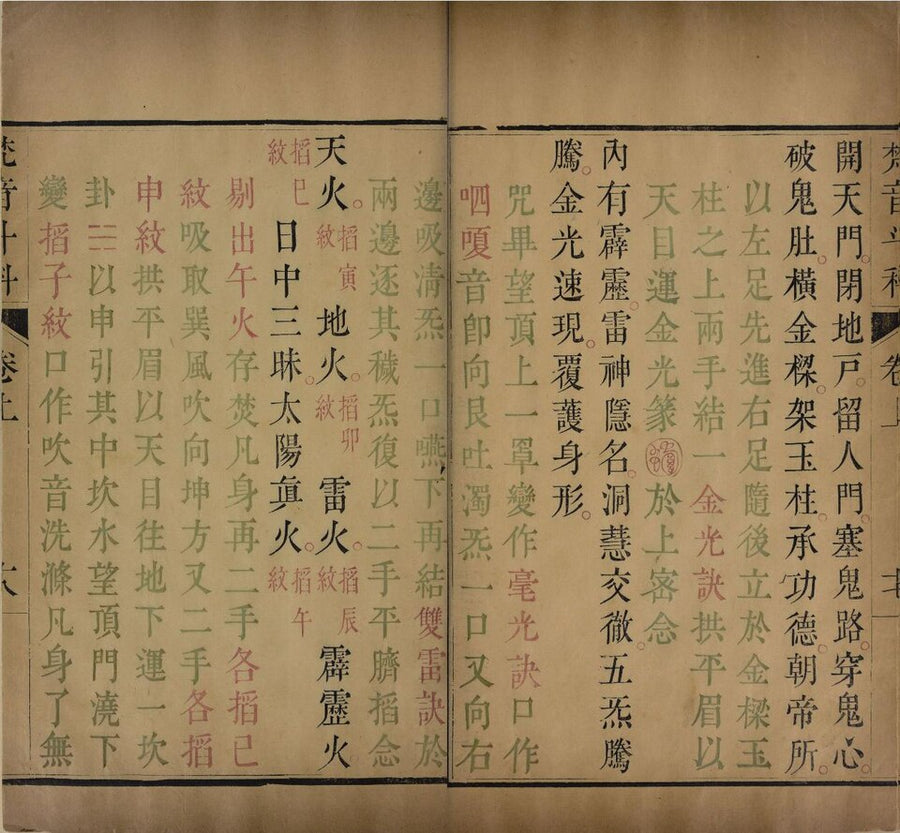 開天門。閉地戶。留人門。塞鬼路。穿鬼心。
破鬼肚。橫金樑。架玉柱。承功德。朝帝所。
以左足先進右足隨後立於金樑玉
柱之上兩手結一金光訣拱平眉以
天目運金光篆於上密念
內有霹靂。雷神隱名。洞慧交徹。五炁騰
騰。金光速現。覆護身形。
咒畢望頂上一罩變作毫光訣口作
呬嗄音卽向艮吐濁炁一口又向右
邊吸清炁一口嚥下再結雙雷訣於
兩邊逐其穢炁復以二手平臍搯念
天火。搯寅紋地火。搯卯紋雷火。搯辰紋霹靂火
搯巳紋日中三昧太陽眞火。搯午紋
剔出午火存焚凡身再二手各搯巳
紋吸取巽風吹向坤方又二手各搯
申紋拱平眉以天目往地下運一坎
卦☵以申引其中坎水望頂門澆下
變搯子紋口作吹音洗滌凡身了無
梵音斗科
卷上